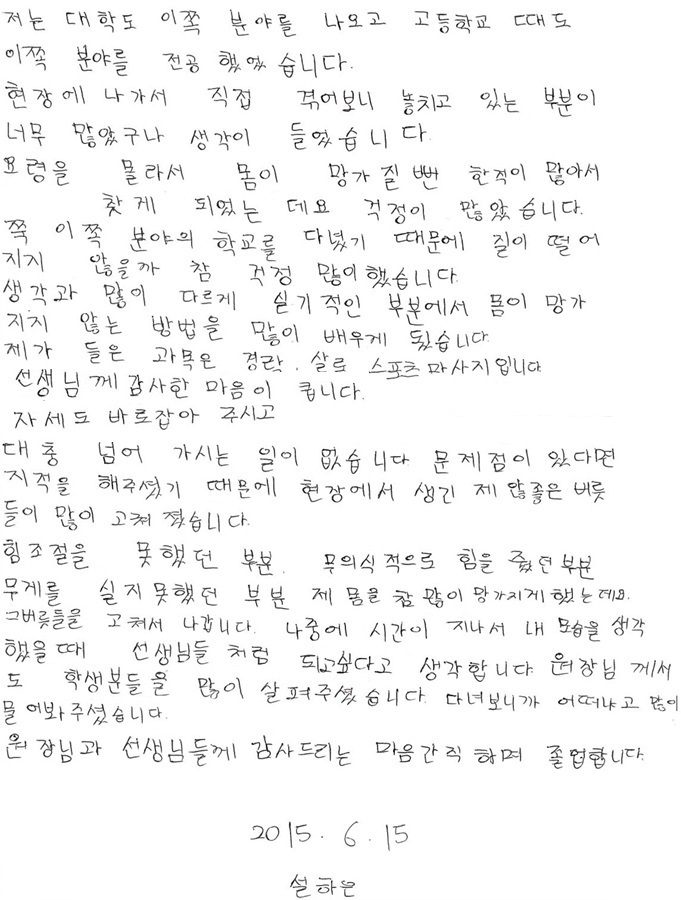 저는 대학도 이쪽 분야를 나오고 고등학교 때도
이쪽 분야를 전공 했었 습니다.
현장에 나가서 직접 겪어보니 놓치고 있는 부분이
너무 많았구나 생각이 들었습니다.
요령을 몰라서 몸이 망가 질 뻔 한적이 많아서
찾게 되었는 데요 걱정이 많았습니다.
쭉 이쪽 분야의 학교를 다녔기 때문에 질이 떨어
지지 않을까 참 걱정 많이했습니다.
생각과 많이 다르게 실기적인 부분에서 몸이 망가
지지 않는 방법을 많이 배우게 됬습니다.
제가 들은 과목은 경락, 살로 스포츠마사지입니다
선생님께감사한 마음이 큽니다.
자세도 바로잡아 주시고
대충 넘어 가시는 일이 없습니다. 문제점이 있다면
지적을 해주셨기 때문에 현장에서 생긴 제 않좋은 버릇
들이 많이 고쳐 졌습니다.
힘조절을 못했던 부분. 무의식적으로 힘을 줬던부분
무게를 실지못했던 부분 제 몸을 참 많이 망가지게했는데요.
그버릇들을 고쳐서 나갑니다. 나중에 시간이 지나서 내 모습을 생각
했을때 선생님들 처럼 되고싶다고 생각합니다. 원장님께서
도 학생분들을 많이 살펴주셨습니다. 다녀보니까 어떠냐고 많이
물어봐주셨습니다.
원장님과 선생님들께 감사드리는 마음간직하며 졸업합니다.
2015. 6. 15
설하은